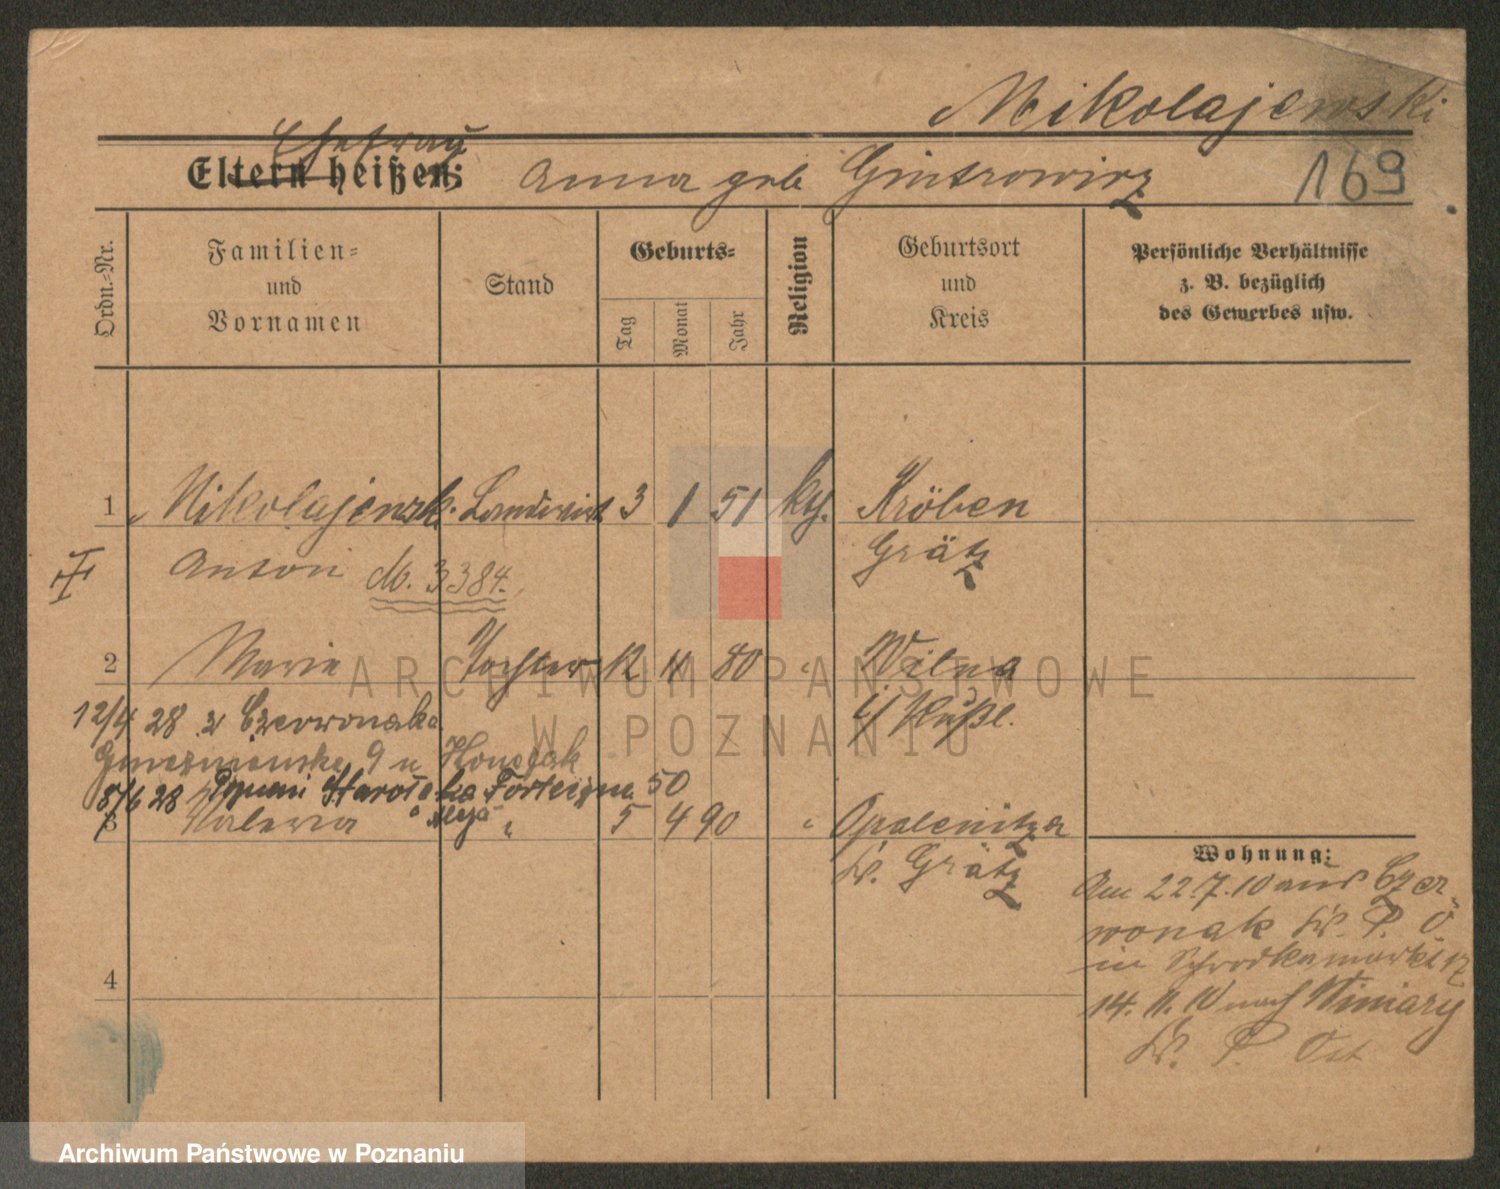 Mikolajewski
Ehefrau
Eltern heißen: Anna geb Gintrowicz
169
Ordn.-Nr.
Familien-
und
Vornamen
Stand
Geburts-
Tag
Monat
Jahr
Religion
Geburtsort
und
Kreis
Persönliche Verhältnisse
z. B. bezüglich
des Gewerbes usw.
1 Mikolajewsk. Landwirt 3 1 51 Kröben
Anton M. 3384. Grätz
2 Marie Tochter 12 11 80 " Wilna
12/4 28 z Czerwonaka
Gnieznienska 9 u
8/6 28 50
3 Valeria " 5 4 90 " Opalenitza
Kr. Grätz
4
Wohnung:
Am 22.7.10 aus Czer-
wonak Kr. P. O
in Schrodkamarkt 17
14. 11. 10 nach Winiary
Kr. P. Ost
ARCHIWUM PAŃSTWOWE
W POZNANIU
Archiwum Państwowe w Poznaniu